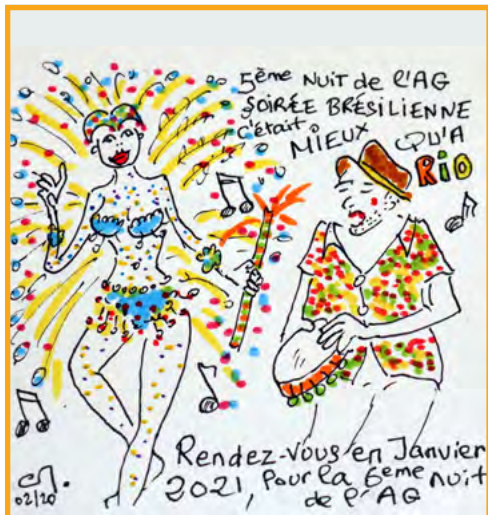 5ème NUIT de l'AG
SOIRÉE BRÉSILIENNE
c'était MIEUX QU'A
RIO
Rendez-vous en Janvier
2021, pour la 6eme nuit
de l'AG
02/20